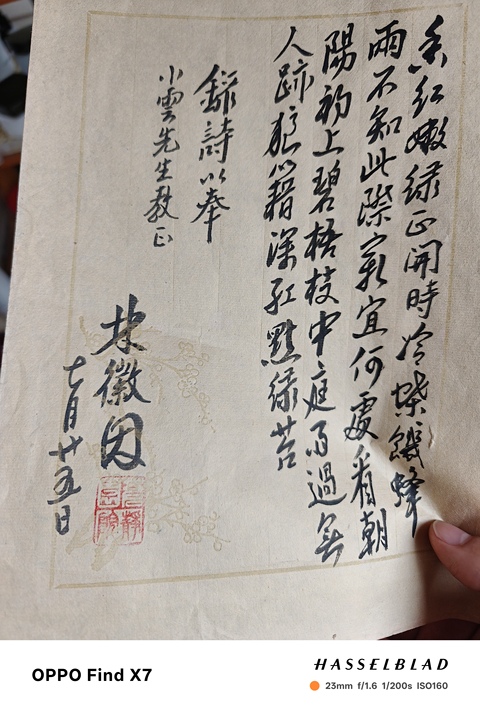 香红嫩绿正開時冷蝶饑蜂
兩不知此際最宜何處看朝
陽初上碧梧枝中庭自過無
人跡狼藉深紅點绿苔
錄詩以奉
小雲先生教正
林徽因
七月廿五日
OPPO Find X7
HASSELBLAD
23mm f/1.6 1/200s ISO160